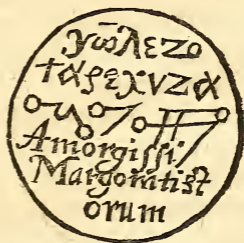 γωλεζο
ταρεχυζα
Amorgissi
Margomtist
orum